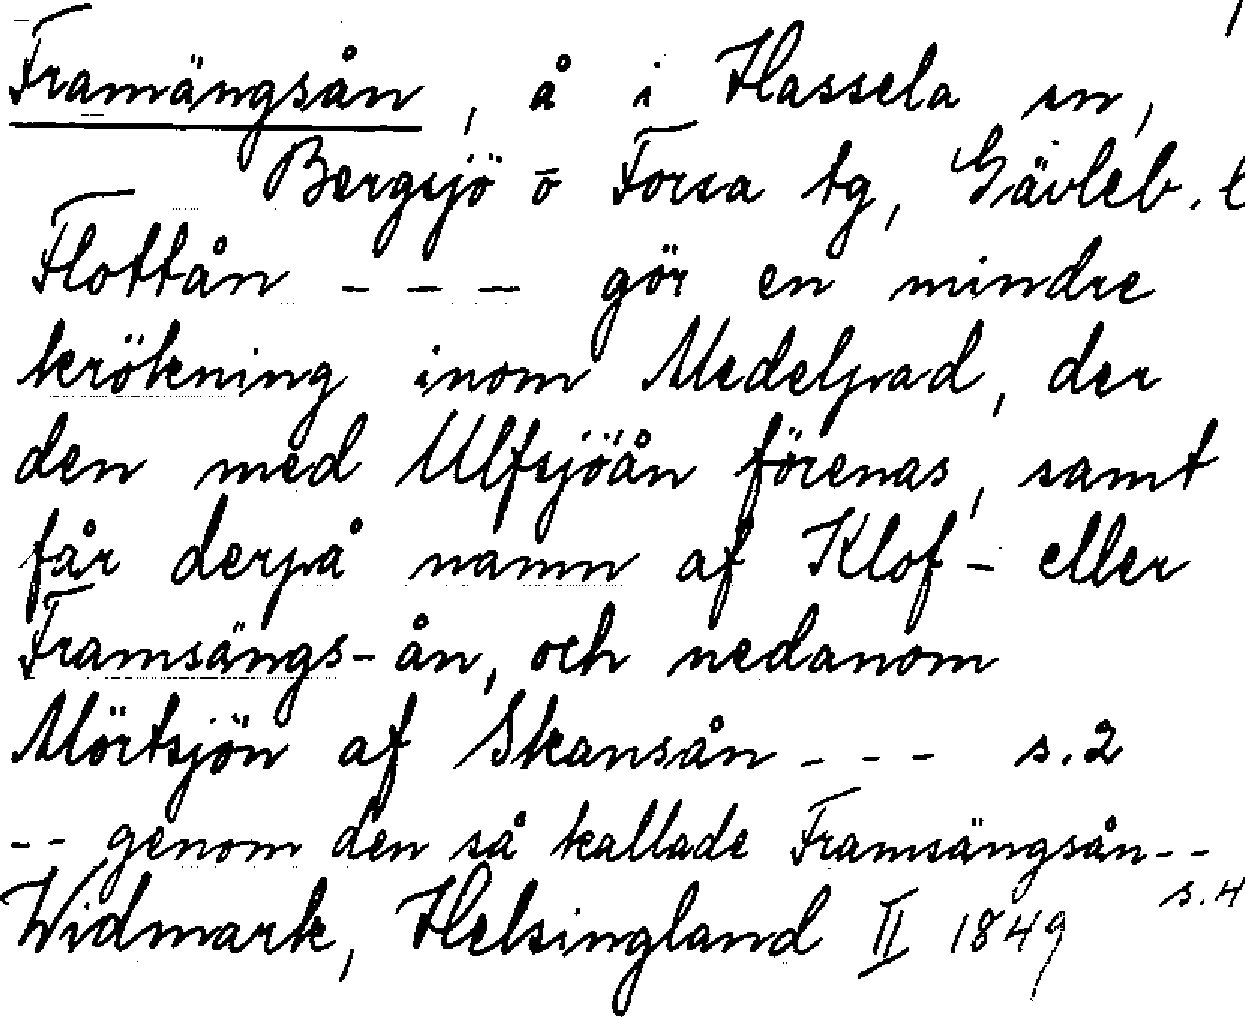 Framängsån, å i Hassela sn,
Bergsjö o Forsa tg, Gävleb. l
Flottån - - - gör en mindre
krökning inom Medelpad, der
den med Ulfsjöån förenas, samt
får derpå namn af Klof- eller
Framsängs-ån, och nedanom
Mörtsjön af Skansån - - - s. 2
-- genom den så kallade Framsängsån--
s. 4
Widmark, Helsingland II 1849